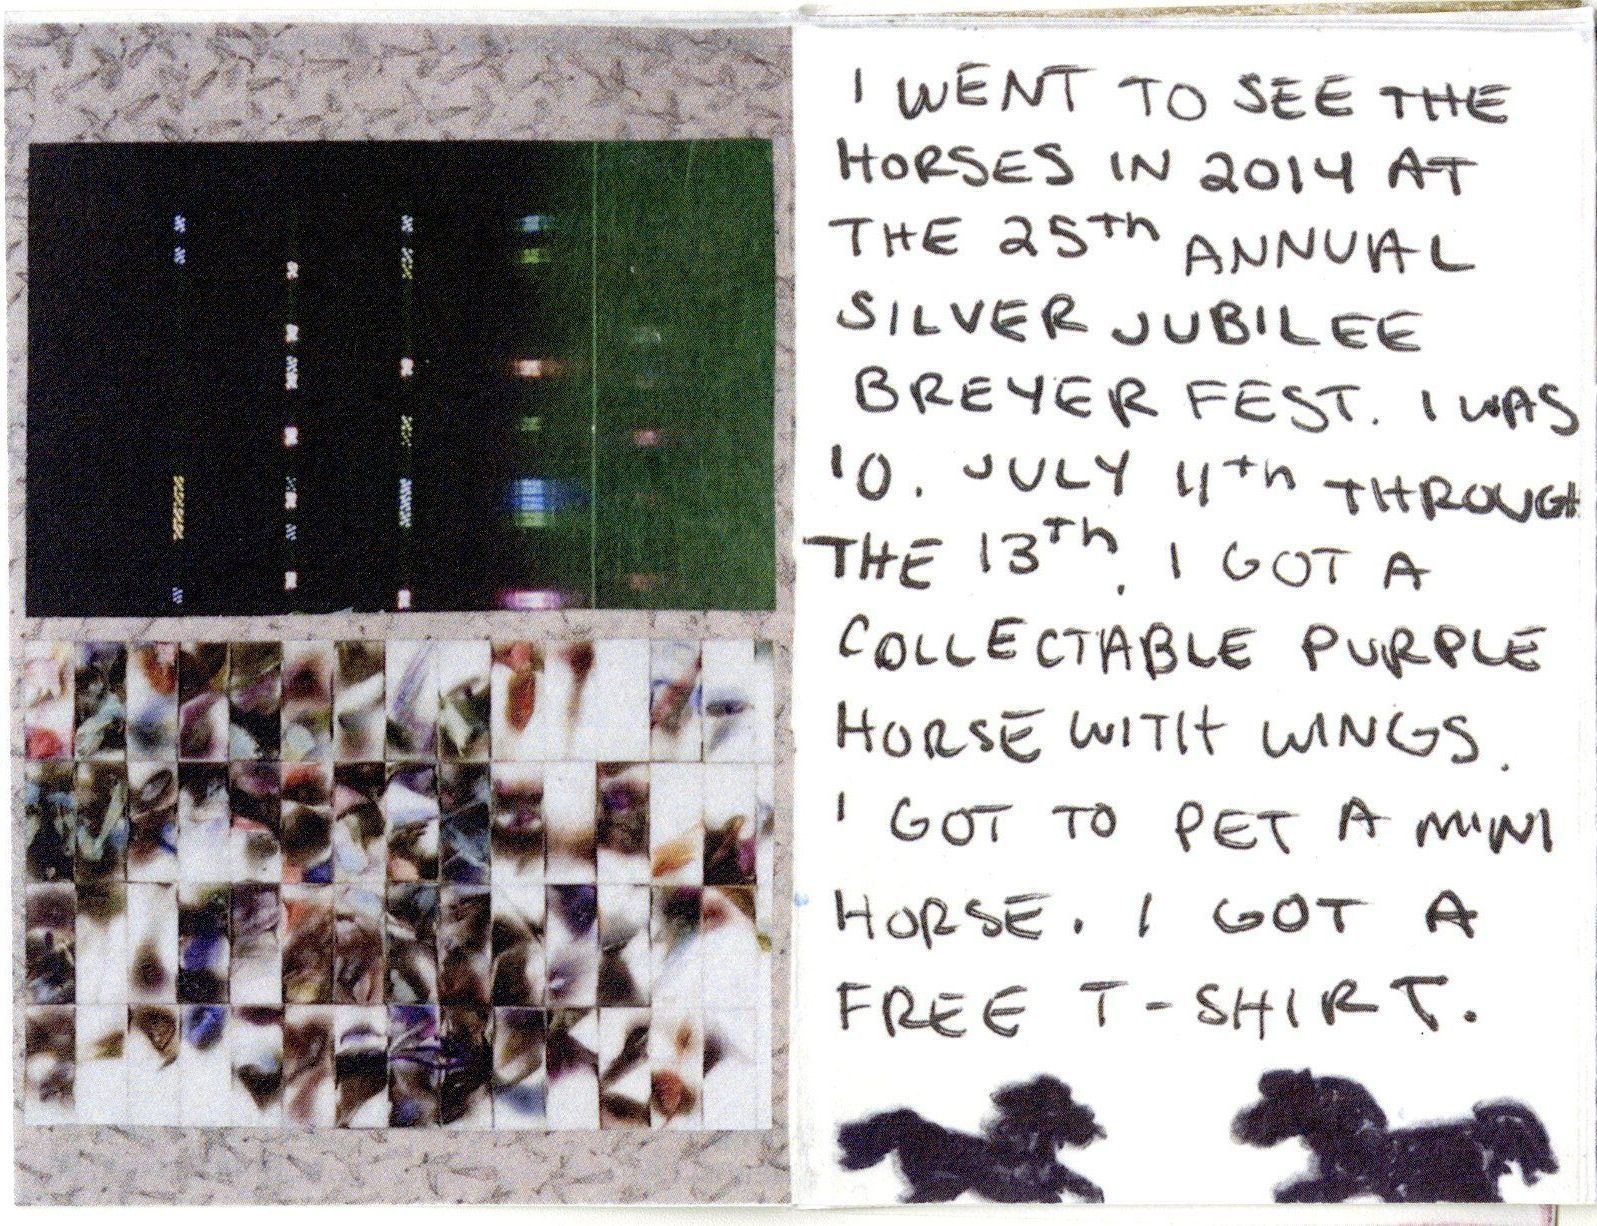 I WENT TO SEE THE
HORSES IN 2014 AT
THE 25th ANNUAL
SILVER JUBILEE
BREYER FEST. I WAS
10. JULY 11th THROUGH
THE 13th. I GOT A
COLLECTABLE PURPLE
HORSE WITH WINGS.
I GOT TO PET A MINI
HORSE. I GOT A
FREE T-SHIRT.